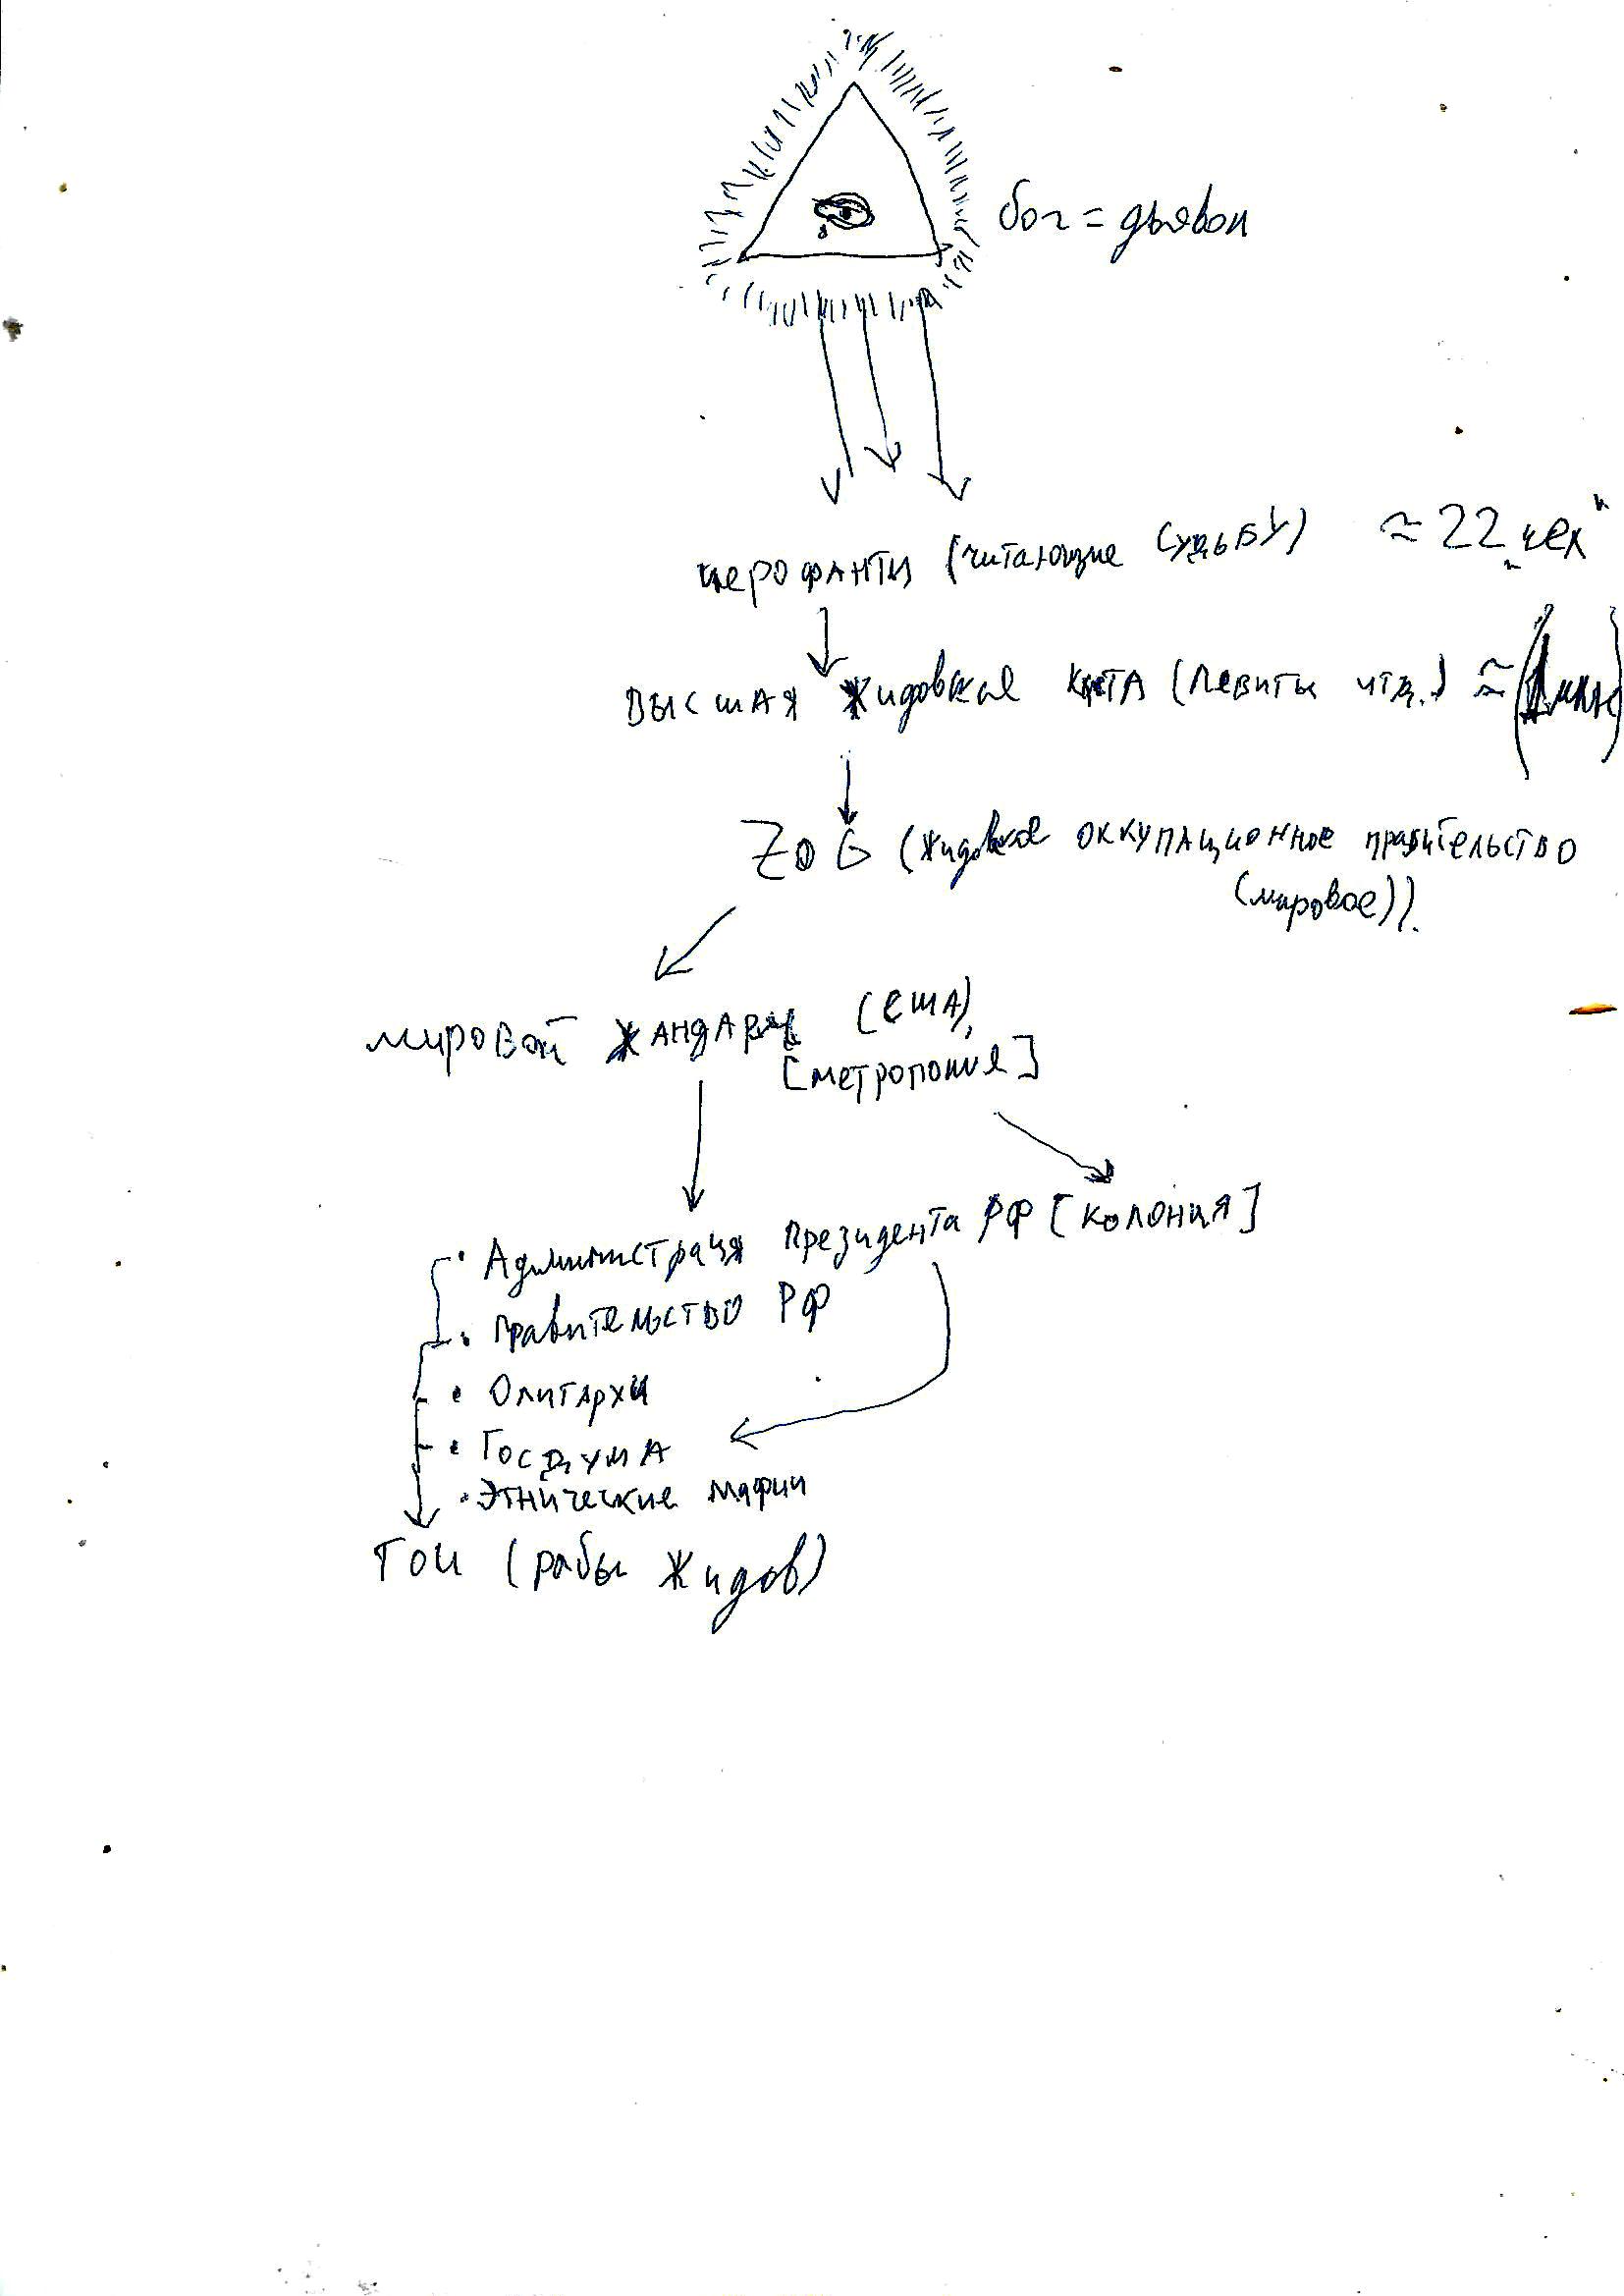 бог = дьявол
иерофанты (читающие судьбу) ≈ 22 чел
высшая жидовская каста (левиты итд.) ≈ (
ZOG (жидовское оккупационное правительство
(мировое)).
мировой жандарм (США),
[метрополия]
• Администрация президента РФ [колония]
• правительство РФ
• Олигархи
• Госдума
• Этнические мафии
гои (рабы жидов)